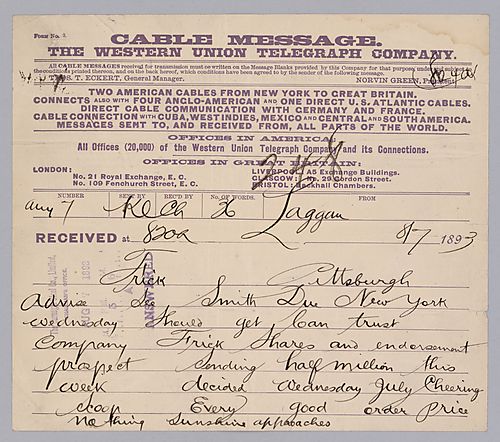 Form No. 2.
CABLE MESSAGE.
THE WESTERN UNION TELEGRAPH COMPANY.
All CABLE MESSAGES received for transmission must be written on the Message Blanks provided by this Company for that purpose, under and subject to
the conditions printed thereon, and on the back hereof, which conditions have been agreed to by the sender of the following message.
THOS. T. ECKERT, General Manager. NORVIN GREEN, President.
TWO AMERICAN CABLES FROM NEW YORK TO GREAT BRITAIN.
CONNECTS ALSO WITH FOUR ANGLO-AMERICAN AND ONE DIRECT U.S. ATLANTIC CABLES.
DIRECT CABLE COMMUNICATION WITH GERMANY AND FRANCE.
CABLE CONNECTION WITH CUBA, WEST INDIES, MEXICO AND CENTRAL AND SOUTH AMERICA.
MESSAGES SENT TO, AND RECEIVED FROM, ALL PARTS OF THE WORLD.
OFFICES IN AMERICA:
All Offices (20,000) of the Western Union Telegraph Company and its Connections.
OFFICES IN GREAT BRITAIN:
LONDON: LIVERPOOL: A5 Exchange Buildings.
No. 21 Royal Exchange, E. C. GLASGOW: No. 29 Gordon Street.
No. 109 Fenchurch Street, E. C. BRISTOL: Backhall Chambers.
NUMBER SENT BY REC'D BY No. OF WORDS. FROM
Any 7 Laggan
RECEIVED at 820a 8/7 1893
ANSWERED
Frick Pittsburgh
Advise Lee Smith Due New York
Wednesday Should get loan trust
Company Frick Shares and endorsement
prospect sending half million this
week decided Wednesday July Cheering
scoop Every good order price
nothing sunshine approaches